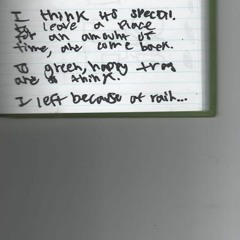 I think its specil.
to leave a place
for an amount of
time, are come back.
a green, happy frog
are a think.
I left because of rain...